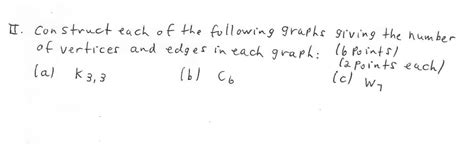 II. Construct each of the following graphs giving the number
of vertices and edges in each graph: (6 points)
(2 points each)
(a) K3,3 (b) C6 (c) W7